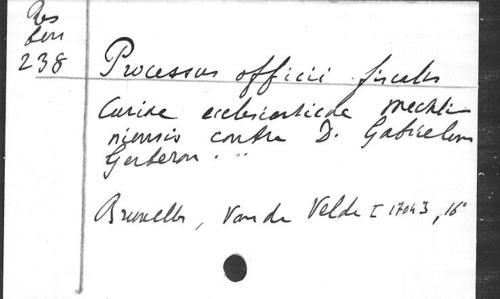 Res
238
Processus officii fiscalis
Curiae ecclesiasticae mechli
niensis contra D. Gabrielem
Gerberon . ..
Bruxelles, Van de Velde I 1704 3, 16°